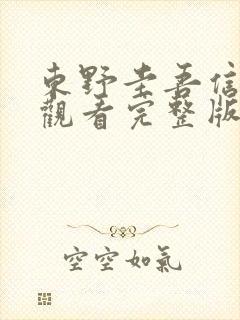 東野圭吾信
觀看完整版
空空如氣